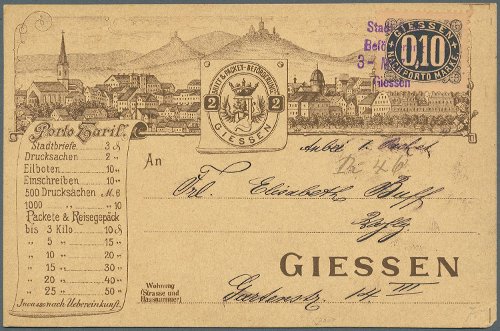 Stadt
Bef
3-
Giessen
GIESSEN
0,10
NACHPORTO MARKE
BRIEF & PACKET-BEFÖRDERUNG
2 2
GIESSEN
Porto Tarif.
Stadtbriefe 3 ₰
Drucksachen 2 "
Eilboten 10 "
Einschreiben 10 "
500 Drucksachen M. 6
1000 " " 10
Packete & Reisegepäck
bis 3 Kilo 10 ₰
" 5 " 15 "
" 10 " 20 "
" 15 " 30 "
" 20 " 40 "
" 25 " 50 "
Incasso nach Uebereinkunft.
An
Anbei 1 Packet
Frl. Elisabeth Buff
GIESSEN
Wohnung
(Strasse und
Hausnummer)
Gartenstr. 14 III